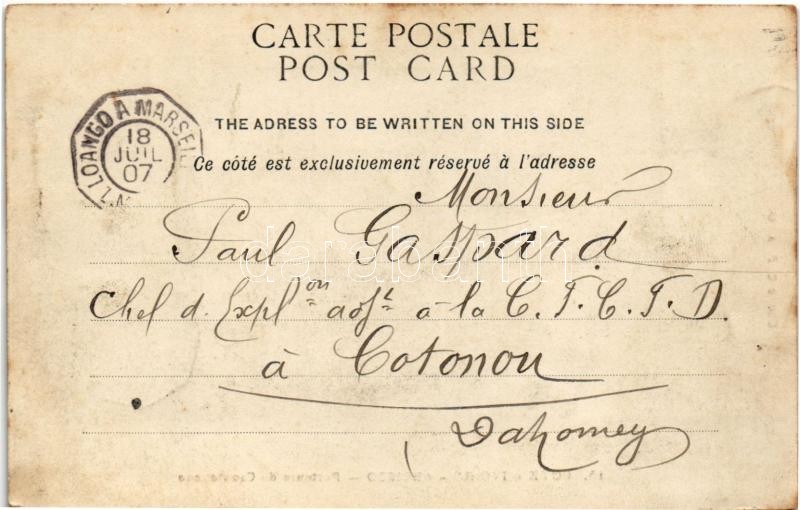 CARTE POSTALE
POST CARD
THE ADRESS TO BE WRITTEN ON THIS SIDE
Ce côté est exclusivement réservé à l'adresse
LOANGO A MARSEIL
18
JUIL
07
Monsieur
Paul Gaspard
Chef d. Expl.on adjt à la C. F. C. F. D.
à Cotonou
Dahomey
darabanth